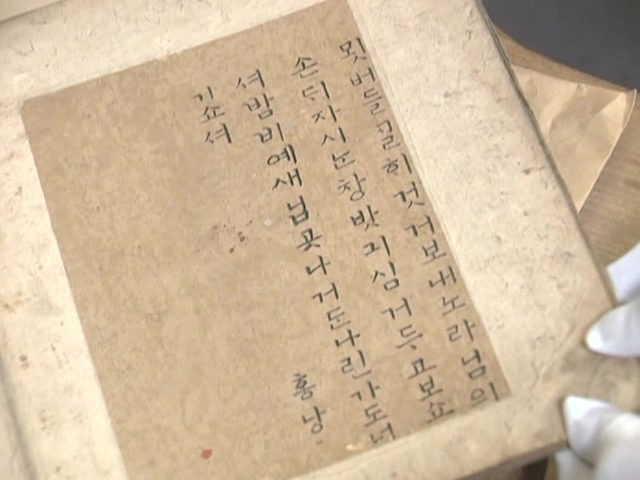 묏버들ᄀᆞᆯᄒᆡ것거보내노라님의
손ᄃᆡ자시ᄂᆞᆫ창밧긔심거두고보쇼
셔밤비예새닙곳나거든나린가도너
기쇼셔
홍낭